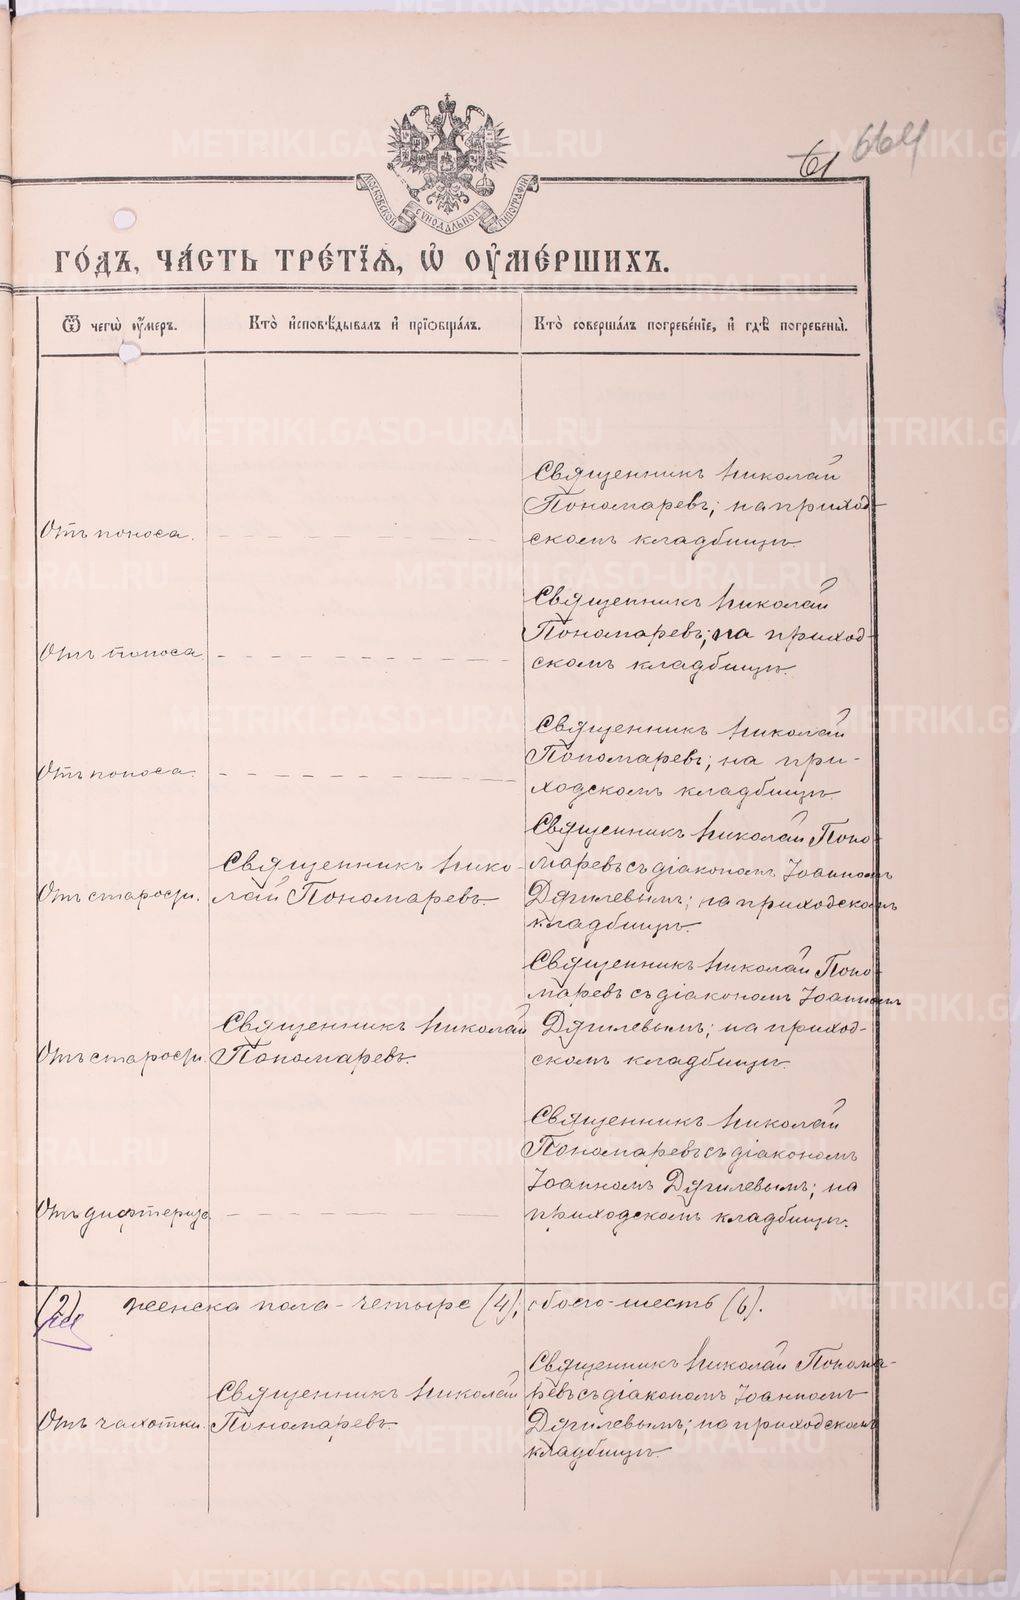 61 664
МОСКОВСКОЙ СѴНОДАЛЬНОЙ ТИПОГРАФІИ
ГО́ДЪ, ЧА́СТЬ ТРЕ́ТІѦ, Ѡ҆ ОУ҆МЕ́РШИХЪ.
Ѿ чегѡ̀ оу҆́меръ.
Кто̀ и҆сповѣ́дывалъ и҆ прїѡбща́лъ.
Кто̀ соверша́лъ погребе́нїе, и҆ гдѣ̀ погребены̀.
Священникъ Николай
Пономаревъ; на приход-
Отъ поноса.
скомъ кладбищѣ.
Священникъ Николай
Пономаревъ; на приход-
Отъ поноса
скомъ кладбищѣ.
Священникъ Николай
Пономаревъ; на при-
Отъ поноса.
ходскомъ кладбищѣ.
Отъ старости.
Священникъ Нико-
лай Пономаревъ.
Священникъ Николай Поно-
маревъ съ діакономъ Іоанномъ
Дягилевымъ; на приходскомъ
кладбищѣ.
Отъ старости.
Священникъ Николай
Пономаревъ
Священникъ Николай Поно-
маревъ съ діакономъ Іоанномъ
Дягилевымъ; на приход-
скомъ кладбищѣ.
Отъ дифтерита
Священникъ Николай
Пономаревъ съ діакономъ
Іоанномъ Дягилевымъ; на
приходскомъ кладбищѣ.
(2) женска пола - четыре (4), обоего - шесть (6).
Отъ чахотки.
Священникъ Николай
Пономаревъ.
Священникъ Николай Понома-
ревъ съ діакономъ Іоанномъ
Дягилевымъ; на приходскомъ
кладбищѣ.
METRIKI.GASO-URAL.RU